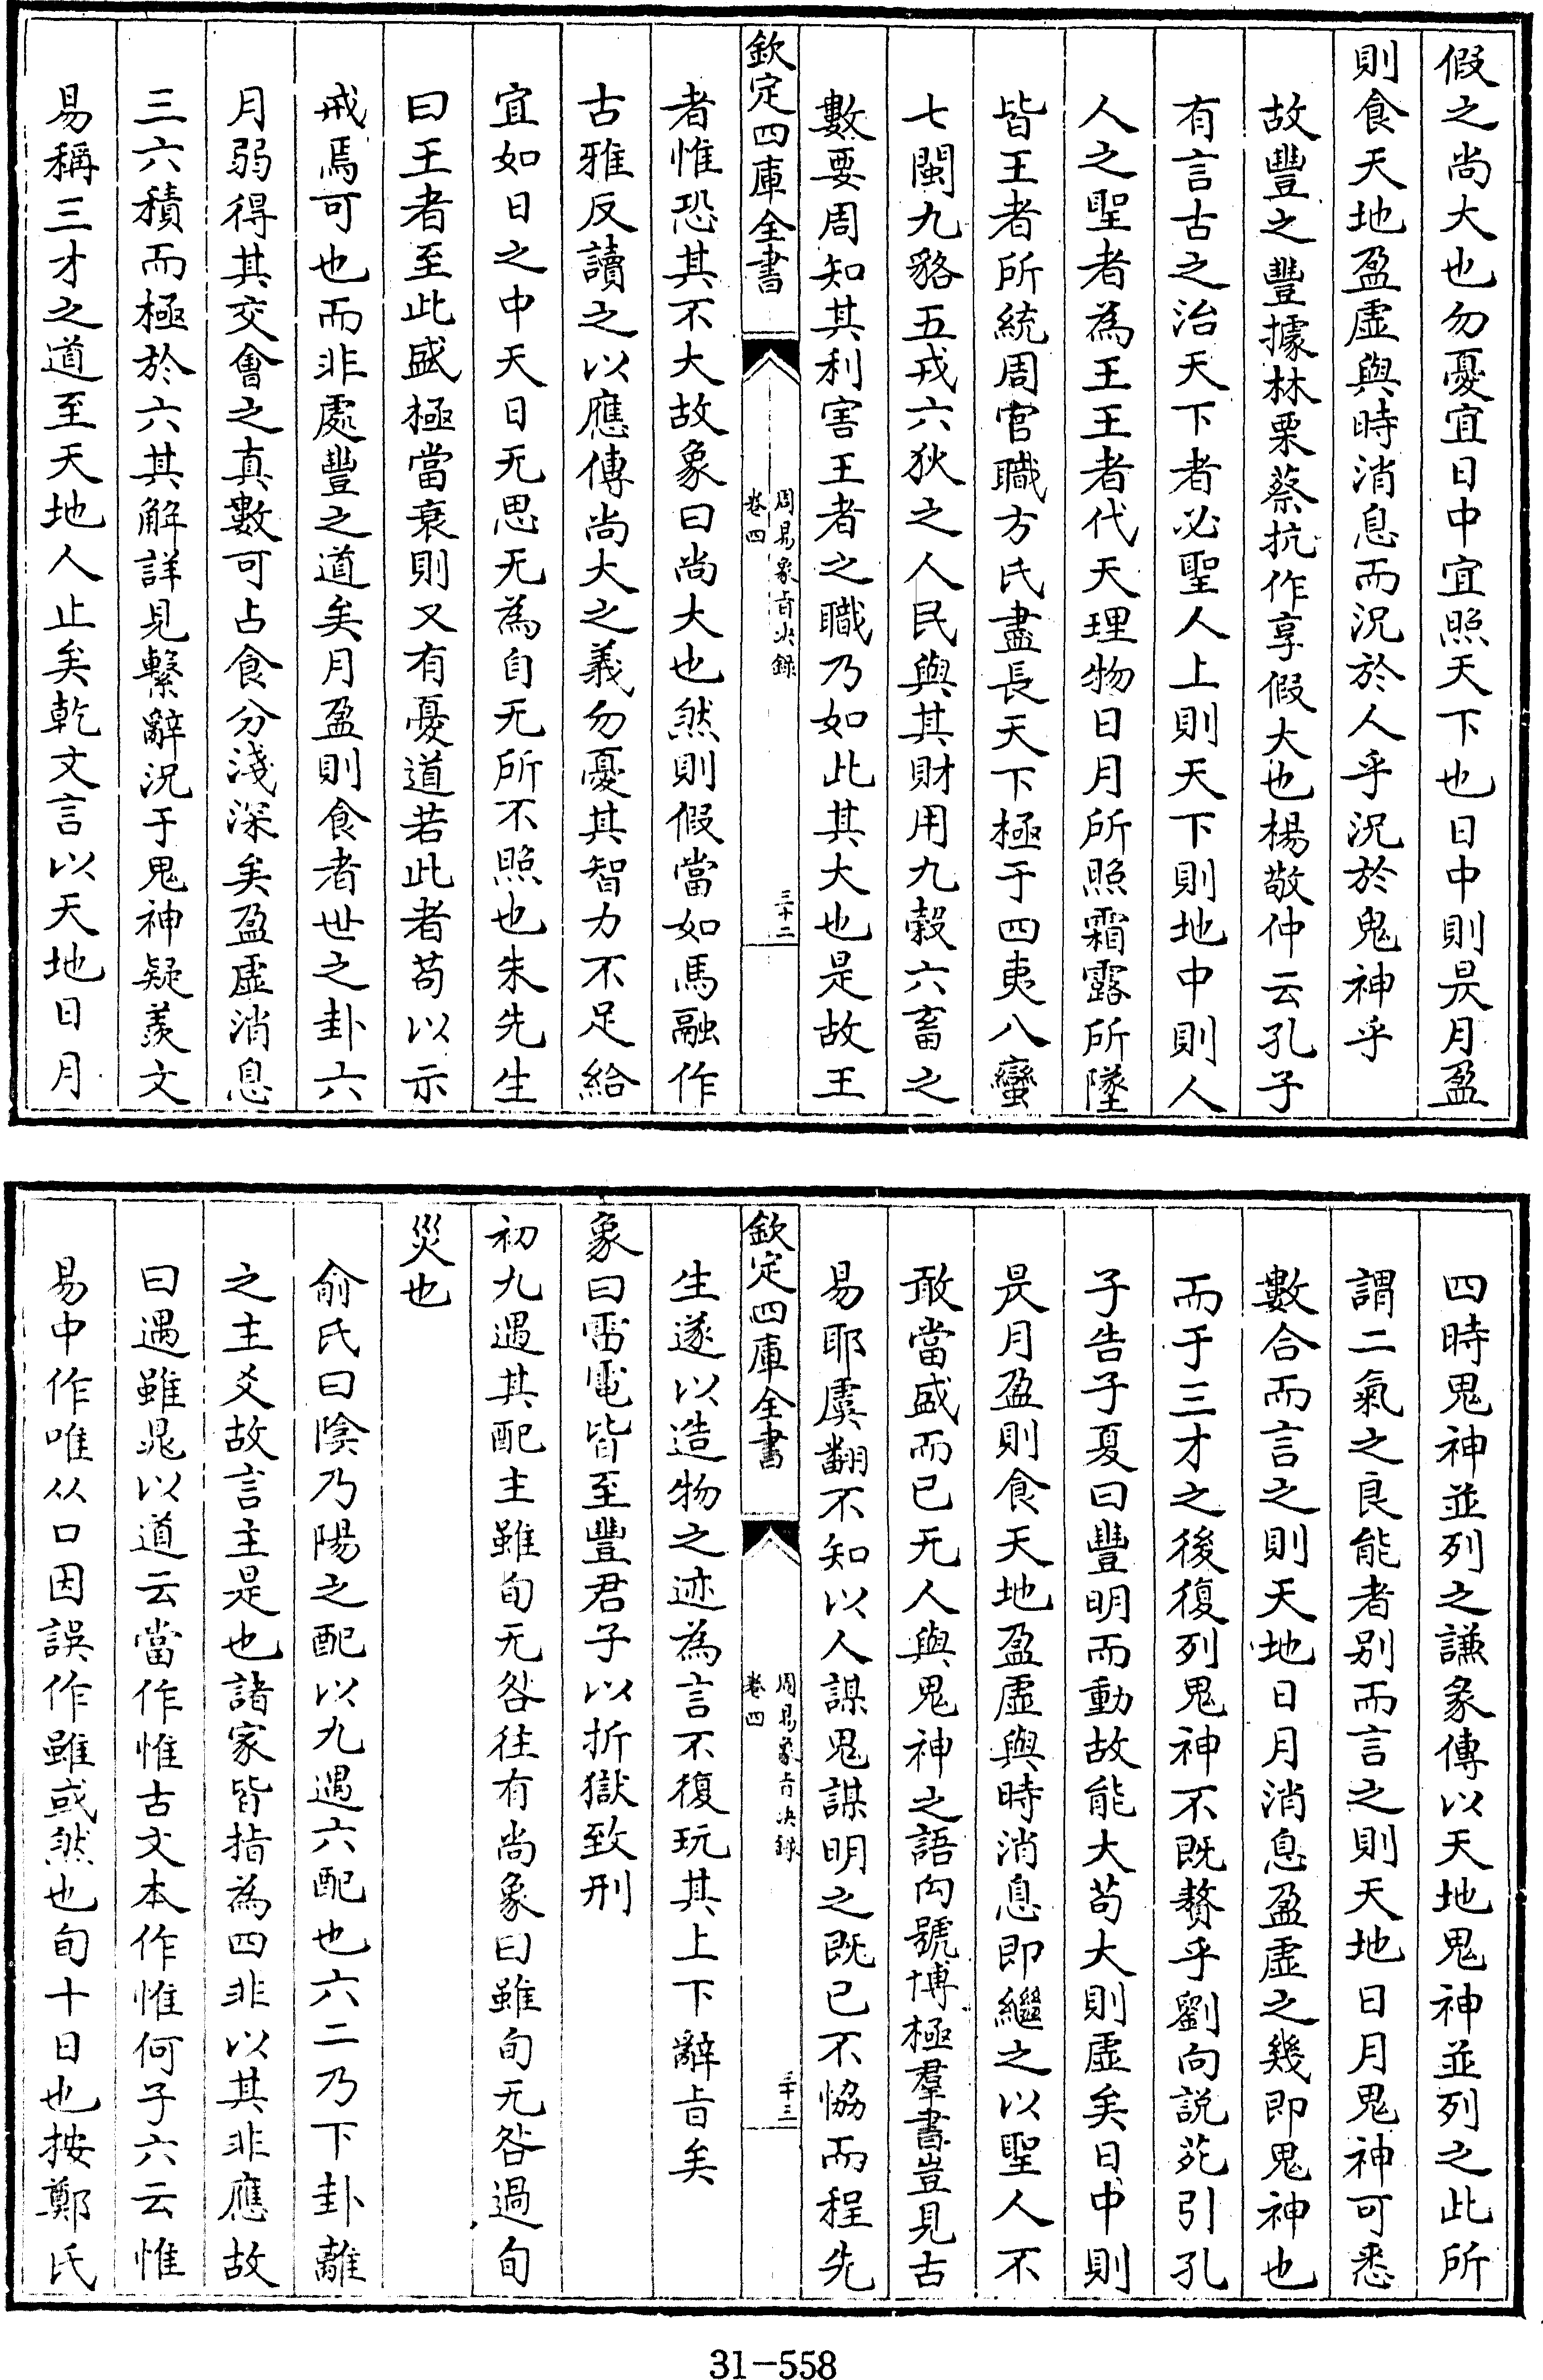 假之尚大也勿憂宜日中宜照天下也日中則昃月盈
則食天地盈虛與時消息而況於人乎況於鬼神乎
故豐之豐據林栗蔡抗作享假大也楊敬仲云孔子
有言古之治天下者必聖人上則天下則地中則人
人之聖者為王王者代天理物日月所照霜露所墜
皆王者所統周官職方氏盡長天下極于四夷八蠻
七閩九貉五戎六狄之人民與其財用九穀六畜之
數要周知其利害王者之職乃如此其大也是故王
欽定四庫全書
周易象旨決錄
卷四
三十二
者惟恐其不大故彖曰尚大也然則假當如馬融作
古雅反讀之以應傳尚大之義勿憂其智力不足給
宜如日之中天日无思无為自无所不照也朱先生
曰王者至此盛極當衰則又有憂道若此者苟以示
戒焉可也而非處豐之道矣月盈則食者世之卦六
月弱得其交會之真數可占食分淺深矣盈虛消息
三六積而極於六其解詳見繫辭況于鬼神疑羨文
易稱三才之道至天地人止矣乾文言以天地日月
四時鬼神並列之謙彖傳以天地鬼神並列之此所
謂二氣之良能者別而言之則天地日月鬼神可悉
數合而言之則天地日月消息盈虛之幾即鬼神也
而于三才之後復列鬼神不既贅乎劉向說苑引孔
子告子夏曰豐明而動故能大苟大則虛矣日中則
昃月盈則食天地盈虛與時消息即繼之以聖人不
敢當盛而已无人與鬼神之語向號博極羣書豈見古
易耶虞翻不知以人謀鬼謀明之既已不恊而程先
欽定四庫全書
周易象旨決錄
卷四
三十三
生遂以造物之迹為言不復玩其上下辭旨矣
象曰雷電皆至豐君子以折獄致刑
初九遇其配主雖旬无咎往有尚象曰雖旬无咎過旬
災也
俞氏曰陰乃陽之配以九遇六配也六二乃下卦離
之主爻故言主是也諸家皆指為四非以其非應故
曰遇雖晁以道云當作惟古文本作惟何子六云惟
易中作唯从口因誤作雖或然也旬十日也按鄭氏
31-558